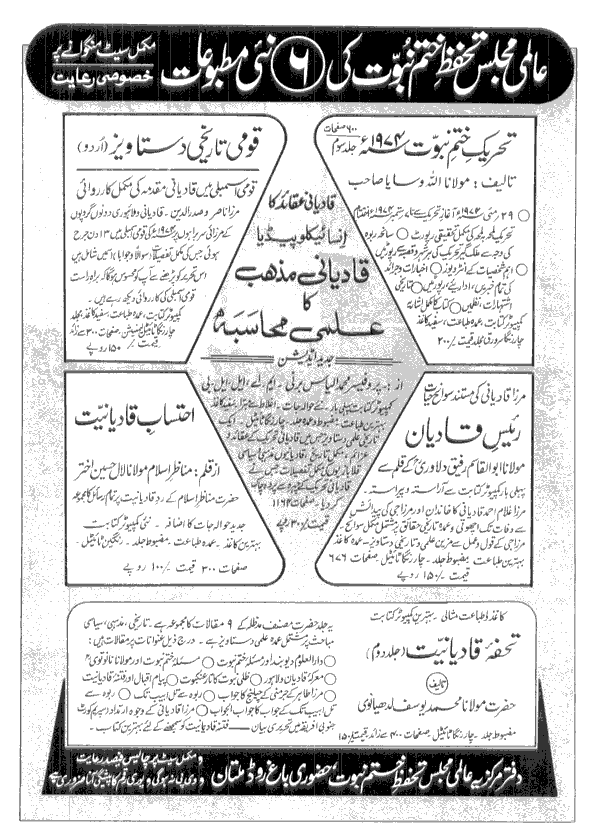 عالمی مجلس تحفظ ختم نبوت کی ۶ نئی مطبوعات
مکمل سیٹ منگوانے پر
خصوصی رعایت
۶۰۰ صفحات
تحریک ختم نبوت ۱۹۷۴ء جلد سوم
تالیف: مولانا اللہ وسایا صاحب
۲۹ مئی ۱۹۷۴ء آغاز تحریک سے
تحریک کی مکمل تحقیقی رپورٹ
اہم شخصیات کے انٹرویوز ○ اخبارات و جرائد
کی تمام خبریں، اداریئے، رپورٹیں ○ تاریخی
اشتہارات، نظمیں ○ کتاب کا مکمل اشاریہ
کمپیوٹر کتابت، عمدہ طباعت، سفید کاغذ
قیمت /۲۰۰
قومی تاریخی دستاویز (اردو)
قومی اسمبلی میں قادیانی مقدمہ کی مکمل کارروائی
مرزا ناصر و صدرالدین۔ قادیانی و لاہوری دونوں گروپوں
کے سربراہوں پر ۱۹۷۴ء کی قومی اسمبلی میں ۱۳ دن جرح
ہوئی جس کی مکمل تفصیلات (سوالاً و جواباً) اس میں شامل ہیں
قومی اسمبلی کی کارروائی دیکھ رہے ہیں۔
کمپیوٹر کتابت، عمدہ طباعت، سفید کاغذ، مجلد
صفحات ۳۰۰ سے زائد
قیمت /۱۵۰ روپے
قادیانی عقائد کا
انسائیکلوپیڈیا
قادیانی مذہب
کا
علمی محاسبہ
جدید ایڈیشن
از: پروفیسر محمد الیاس برنی۔ ایم اے، ایل ایل بی
کمپیوٹر کتابت پہلی بار۔ نئے حوالہ جات۔ اغلاط سے مبرا سفید کاغذ
بہترین طباعت۔ مضبوط و عمدہ جلد۔ چار رنگا ٹائیٹل۔ ایک
تاریخی علمی دستاویز جس میں قادیانی تحریک کے عقائد و
عزائم، مکمل تاریخ، قادیانیوں کی مذہبی سیاسی
قلابازیوں کی مکمل تفصیلات جس نے
کردیا۔ صفحات ۱۱۶۴
قیمت /۳۰۰ روپے
مرزا قادیانی کی مستند سوانح حیات
رئیس قادیان
مولانا ابوالقاسم رفیق دلاوری کے قلم سے
پہلی بار کمپیوٹر کتابت سے آراستہ و پیراستہ۔
مرزا غلام احمد قادیانی کا خاندان اور مرزا جی کی پیدائش
سے وفات تک اچھوتی و عمدہ تاریخی حقائق پر مشتمل مکمل سوانح۔
مرزا جی کے قول و عمل سے مزین علمی و تاریخی دستاویز۔ عمدہ کاغذ
بہترین طباعت۔ مضبوط جلد۔ چار رنگا ٹائیٹل۔ صفحات ۶۷۶
قیمت /۱۵۰ روپے
احتساب قادیانیت
از قلم: مناظر اسلام مولانا لال حسین اختر
حضرت مناظر اسلام کے رد قادیانیت پر تمام رسائل کا مجموعہ
جدید حوالہ جات کا اضافہ۔ نئی کمپیوٹر کتابت
بہترین کاغذ۔ عمدہ طباعت۔ مضبوط جلد۔ رنگین ٹائیٹل۔
صفحات ۳۰۰ قیمت /۱۰۰ روپے
کاغذ و طباعت مثالی۔ بہترین کمپیوٹر کتابت
تحفۂ قادیانیت (جلد دوم)
تالیف
حضرت مولانا محمد یوسف لدھیانوی
مضبوط جلد۔ چار رنگا ٹائیٹل۔ صفحات ۴۰۰ سے زائد، قیمت /۱۵۰
یہ جلد حضرت مصنف مدظلہ کے ۹ مقالات کا مجموعہ ہے۔ تاریخی، مذہبی، سیاسی
مباحث پر مشتمل عمدہ علمی دستاویز ہے۔ درج ذیل عنوانات پر مقالات ہیں:
○ دارالعلوم دیوبند اور مسئلہ ختم نبوت ○ مسئلہ ختم نبوت اور مولانا نانوتویؒ
○ معرکۂ قادیان و لاہور ○ ظلی نبوت کا تار عنکبوت ○ پیام اقبال اور فتنہ قادیانیت
○ مرزا طاہر کے جرمنی کے چیلنج کا جواب ○ ربوہ سے تل ابیب تک ○ ربوہ سے
تل ابیب تک کے جواب کا جواب الجواب ○ مرزا قادیانی کے وجوہ ارتداد (سپریم کورٹ
جنوبی افریقہ میں تحریری بیان۔ فتنہ قادیانیت کو سمجھنے کے لئے بہترین کتاب۔
دفتر مرکزیہ عالمی مجلس تحفظ ختم نبوت حضوری باغ روڈ ملتان
○ مکمل سیٹ پر چالیس فیصد رعایت
○ وی پی نہ ہوگی ○ پوری رقم کا پیشگی آنا ضروری ہے